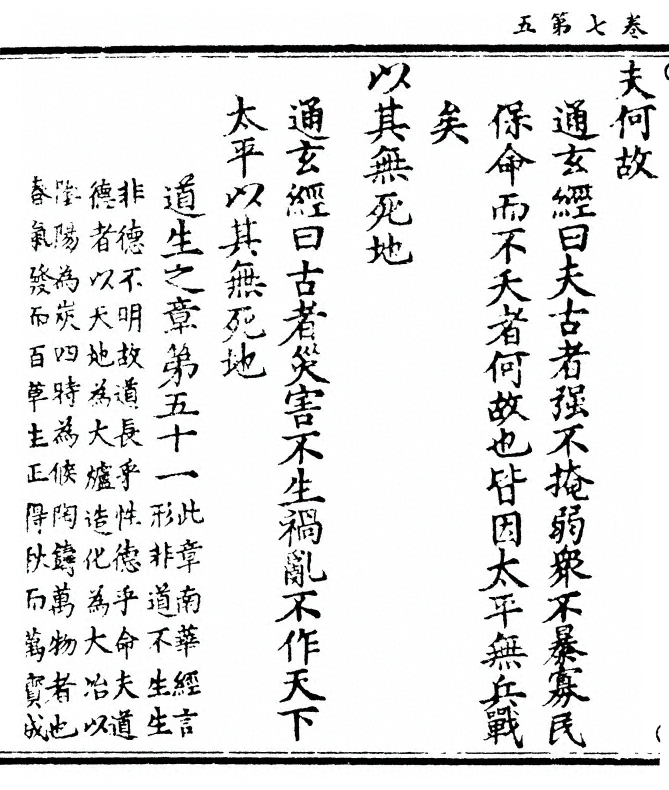 卷七第五
夫何故
通玄經曰夫古者强不掩弱衆不暴寡民
保命而不夭者何故也皆因太平無兵戰
矣
以其無死地
通玄經曰古者災害不生禍亂不作天下
太平以其無死地
道生之章第五十一此章南華經言
形非道不生生
非德不明故道長乎性德乎命夫道
德者以天地為大爐造化為大冶以
陰陽為炭四時為候陶鑄萬物者也
春氣發而百草生正得秋而萬寳成